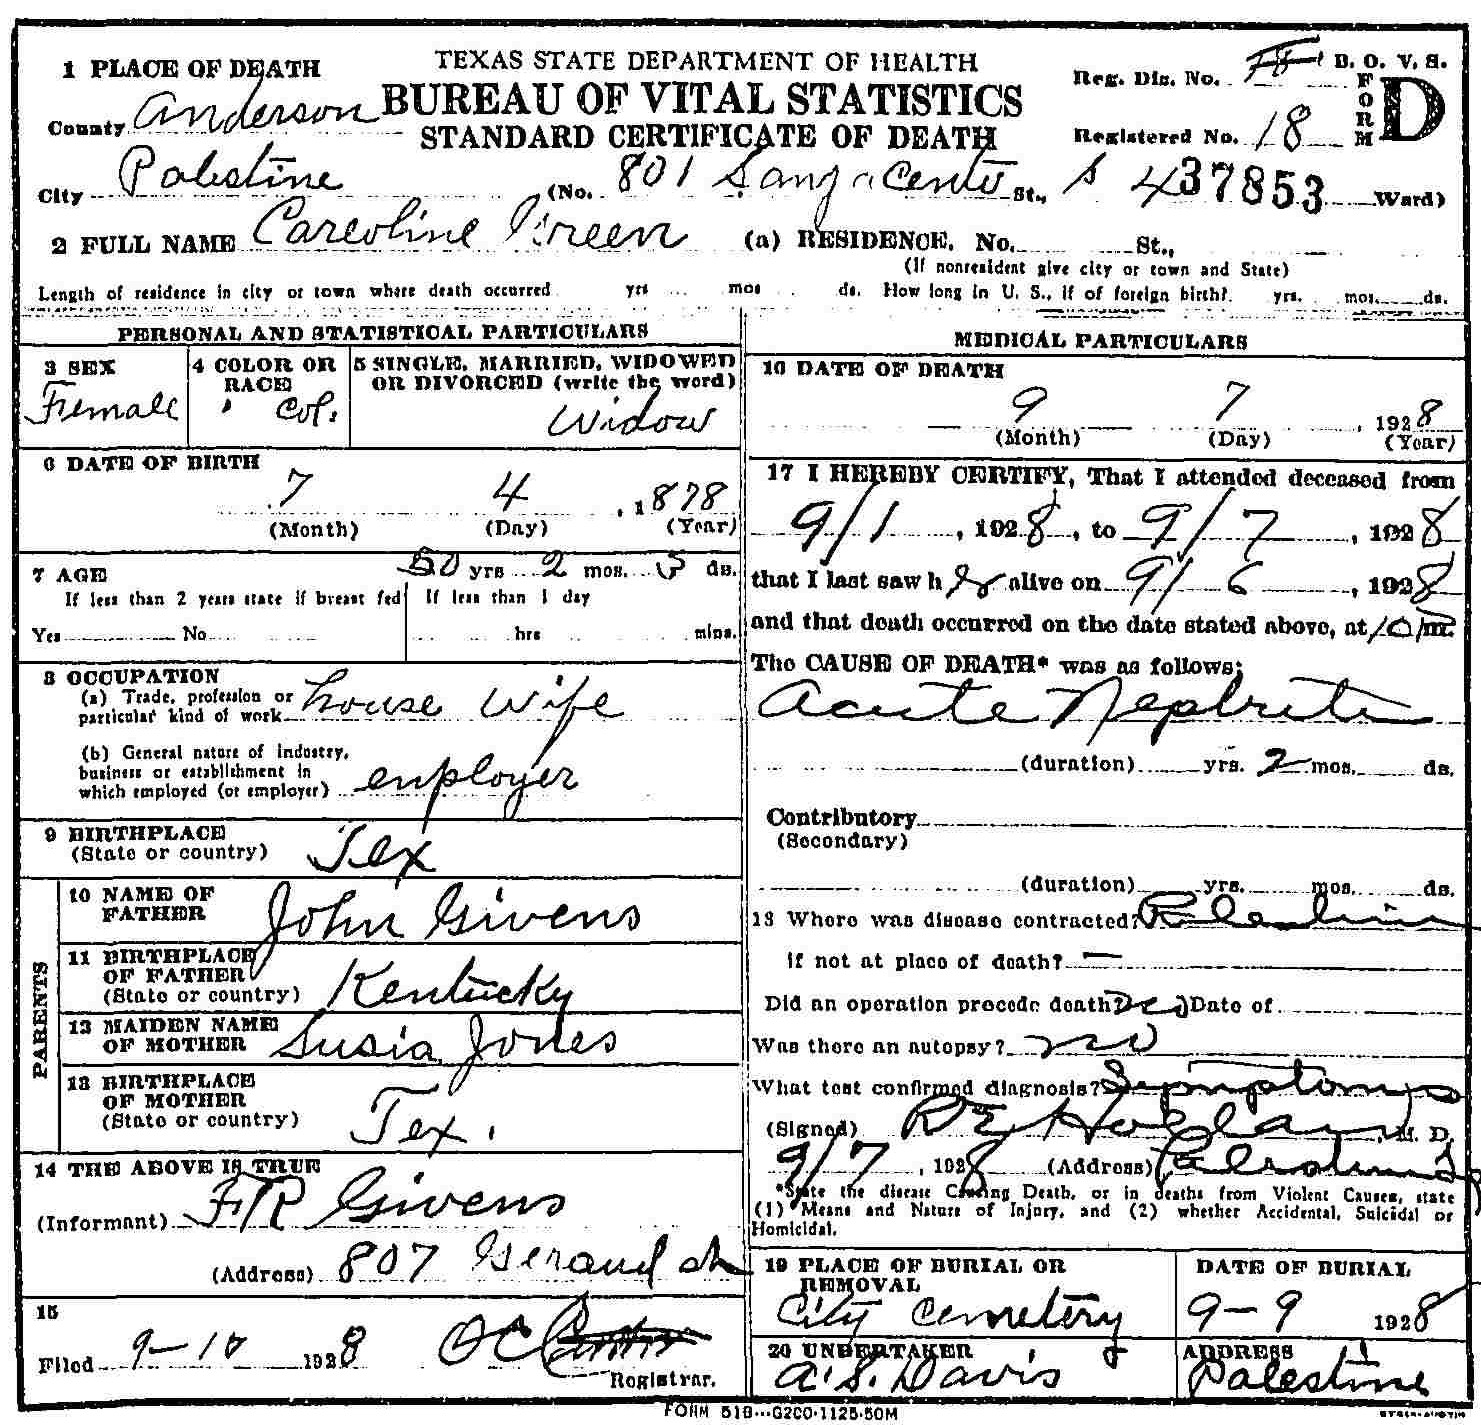 TEXAS STATE DEPARTMENT OF HEALTH
BUREAU OF VITAL STATISTICS
STANDARD CERTIFICATE OF DEATH
Reg. Dis. No.
B. O. V. S.
FORM D
Registered No. 18
37853
1 PLACE OF DEATH
County Anderson
City Palestine (No. 801 St., Ward)
2 FULL NAME Careoline Green (a) RESIDENCE. No. St.,
(If nonresident give city or town and State)
Length of residence in city or town where death occurred yrs mos ds. How long in U. S., if of foreign birth? yrs. mos. ds.
PERSONAL AND STATISTICAL PARTICULARS
3 SEX
Female
4 COLOR OR RACE
Col.
5 SINGLE, MARRIED, WIDOWED
OR DIVORCED (write the word)
Widow
6 DATE OF BIRTH
7 4 , 1878
(Month) (Day) (Year)
7 AGE 50 yrs 2 mos. 3 ds.
If less than 2 years state if breast fed If less than 1 day
Yes No hrs mins.
8 OCCUPATION
(a) Trade, profession or
particular kind of work house wife
(b) General nature of industry,
business or establishment in
which employed (or employer) employer
9 BIRTHPLACE
(State or country) Tex
PARENTS
10 NAME OF
FATHER John Givens
11 BIRTHPLACE
OF FATHER
(State or country) Kentucky
12 MAIDEN NAME
OF MOTHER Susia Jones
13 BIRTHPLACE
OF MOTHER
(State or country) Tex.
14 THE ABOVE IS TRUE
(Informant) FR Givens
(Address) 807
15
Filed 9-10 1928
Registrar.
MEDICAL PARTICULARS
16 DATE OF DEATH
9 7 , 1928
(Month) (Day) (Year)
17 I HEREBY CERTIFY, That I attended deceased from
9/1 , 1928, to 9/7 , 1928
that I last saw her alive on 9/6 , 1928
and that death occurred on the date stated above, at 10 m.
The CAUSE OF DEATH* was as follows:
Acute Nephritis
(duration) yrs. 2 mos. ds.
Contributory
(Secondary)
(duration) yrs. mos. ds.
18 Where was disease contracted? Palestine
if not at place of death? —
Did an operation precede death? Date of
Was there an autopsy? no
What test confirmed diagnosis? Symptoms
(Signed) , M. D.
9/7 , 1928 (Address) Palestine
*State the disease Causing Death, or in deaths from Violent Causes, state
(1) Means and Nature of Injury, and (2) whether Accidental, Suicidal or
Homicidal.
19 PLACE OF BURIAL OR
REMOVAL
City Cemetery
DATE OF BURIAL
9-9 1928
20 UNDERTAKER
A. S. Davis
ADDRESS
Palestine
FORM 51B---G200-1125-50M